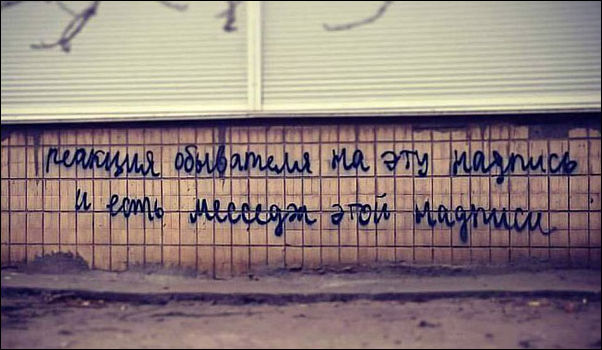 реакция обывателя на эту надпись
и есть месседж этой надписи